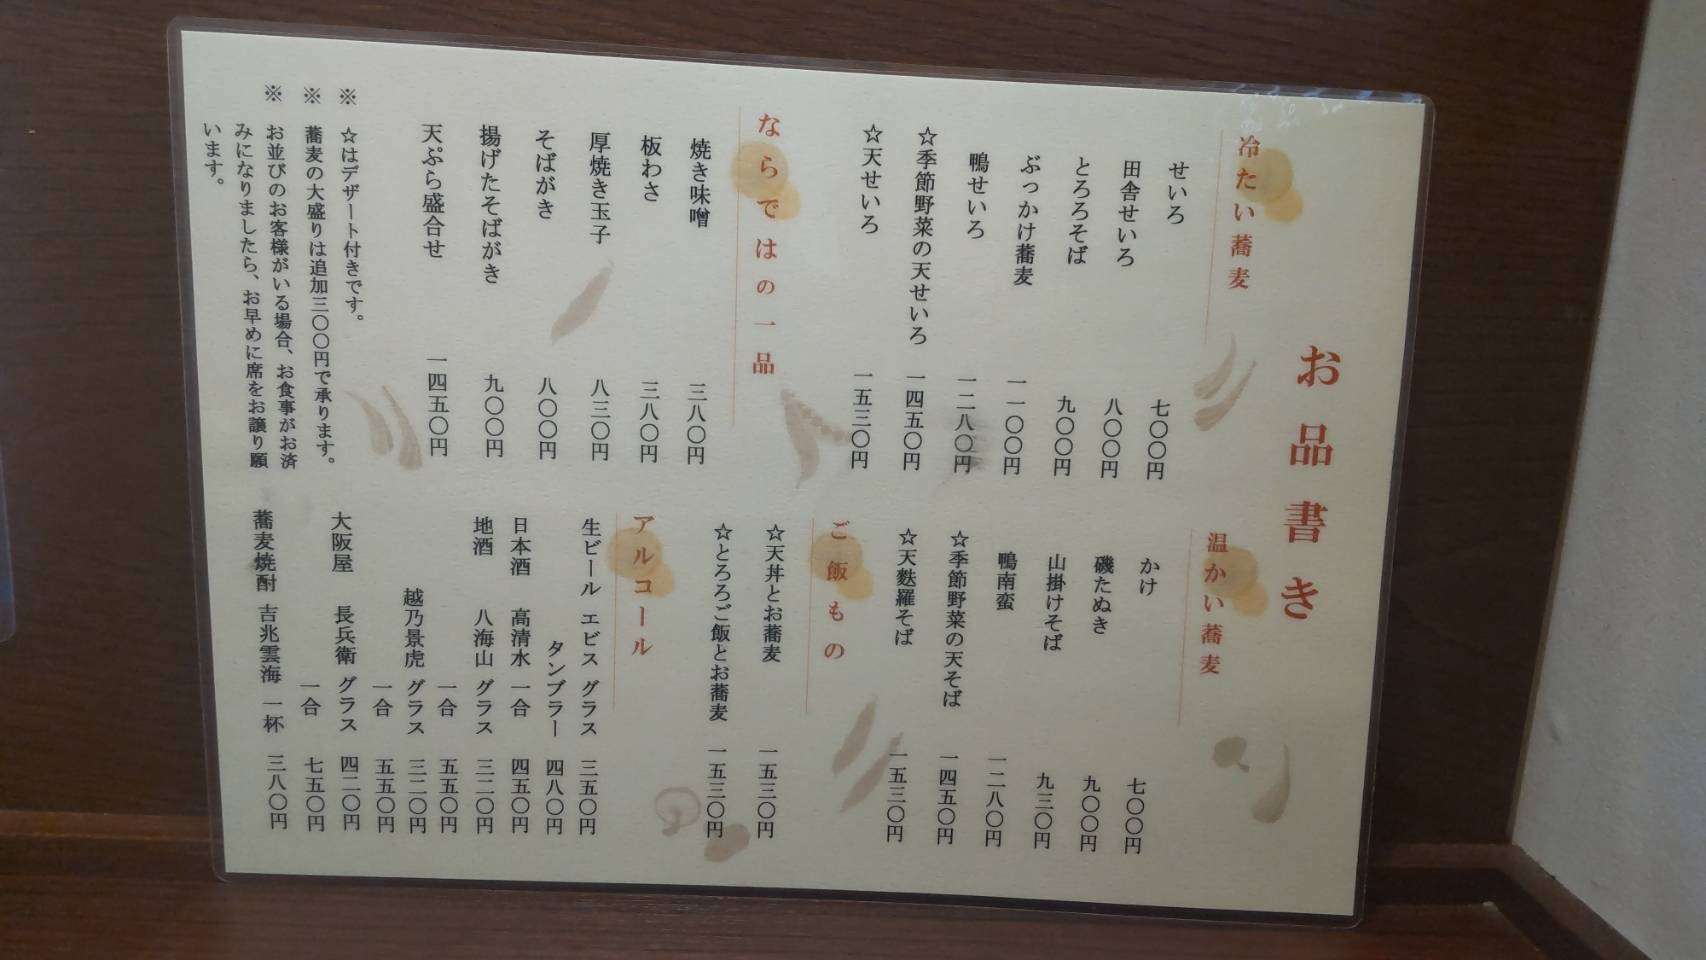 お品書き
冷たい蕎麦
せいろ 七〇〇円
田舎せいろ 八〇〇円
とろろそば 九〇〇円
ぶっかけ蕎麦 一一〇〇円
鴨せいろ 一二八〇円
☆季節野菜の天せいろ 一四五〇円
☆天せいろ 一五三〇円
ならではの一品
焼き味噌 三八〇円
板わさ 三八〇円
厚焼き玉子 八三〇円
そばがき 八〇〇円
揚げたそばがき 九〇〇円
天ぷら盛合せ 一四五〇円
※ ☆はデザート付きです。
※ 蕎麦の大盛りは追加三〇〇円で承ります。
※ お並びのお客様がいる場合、お食事がお済
みになりましたら、お早めに席をお譲り願
います。
温かい蕎麦
かけ 七〇〇円
磯たぬき 九〇〇円
山掛けそば 九三〇円
鴨南蛮 一二八〇円
☆季節野菜の天そば 一四五〇円
☆天麩羅そば 一五三〇円
ご飯もの
☆天丼とお蕎麦 一五三〇円
☆とろろご飯とお蕎麦 一五三〇円
アルコール
生ビール エビス グラス 三五〇円
タンブラー 四八〇円
日本酒 高清水 一合 四五〇円
地酒 八海山 グラス 三二〇円
一合 五五〇円
越乃景虎 グラス 三二〇円
一合 五五〇円
大阪屋 長兵衛 グラス 四二〇円
一合 七五〇円
蕎麦焼酎 吉兆雲海 一杯 三八〇円